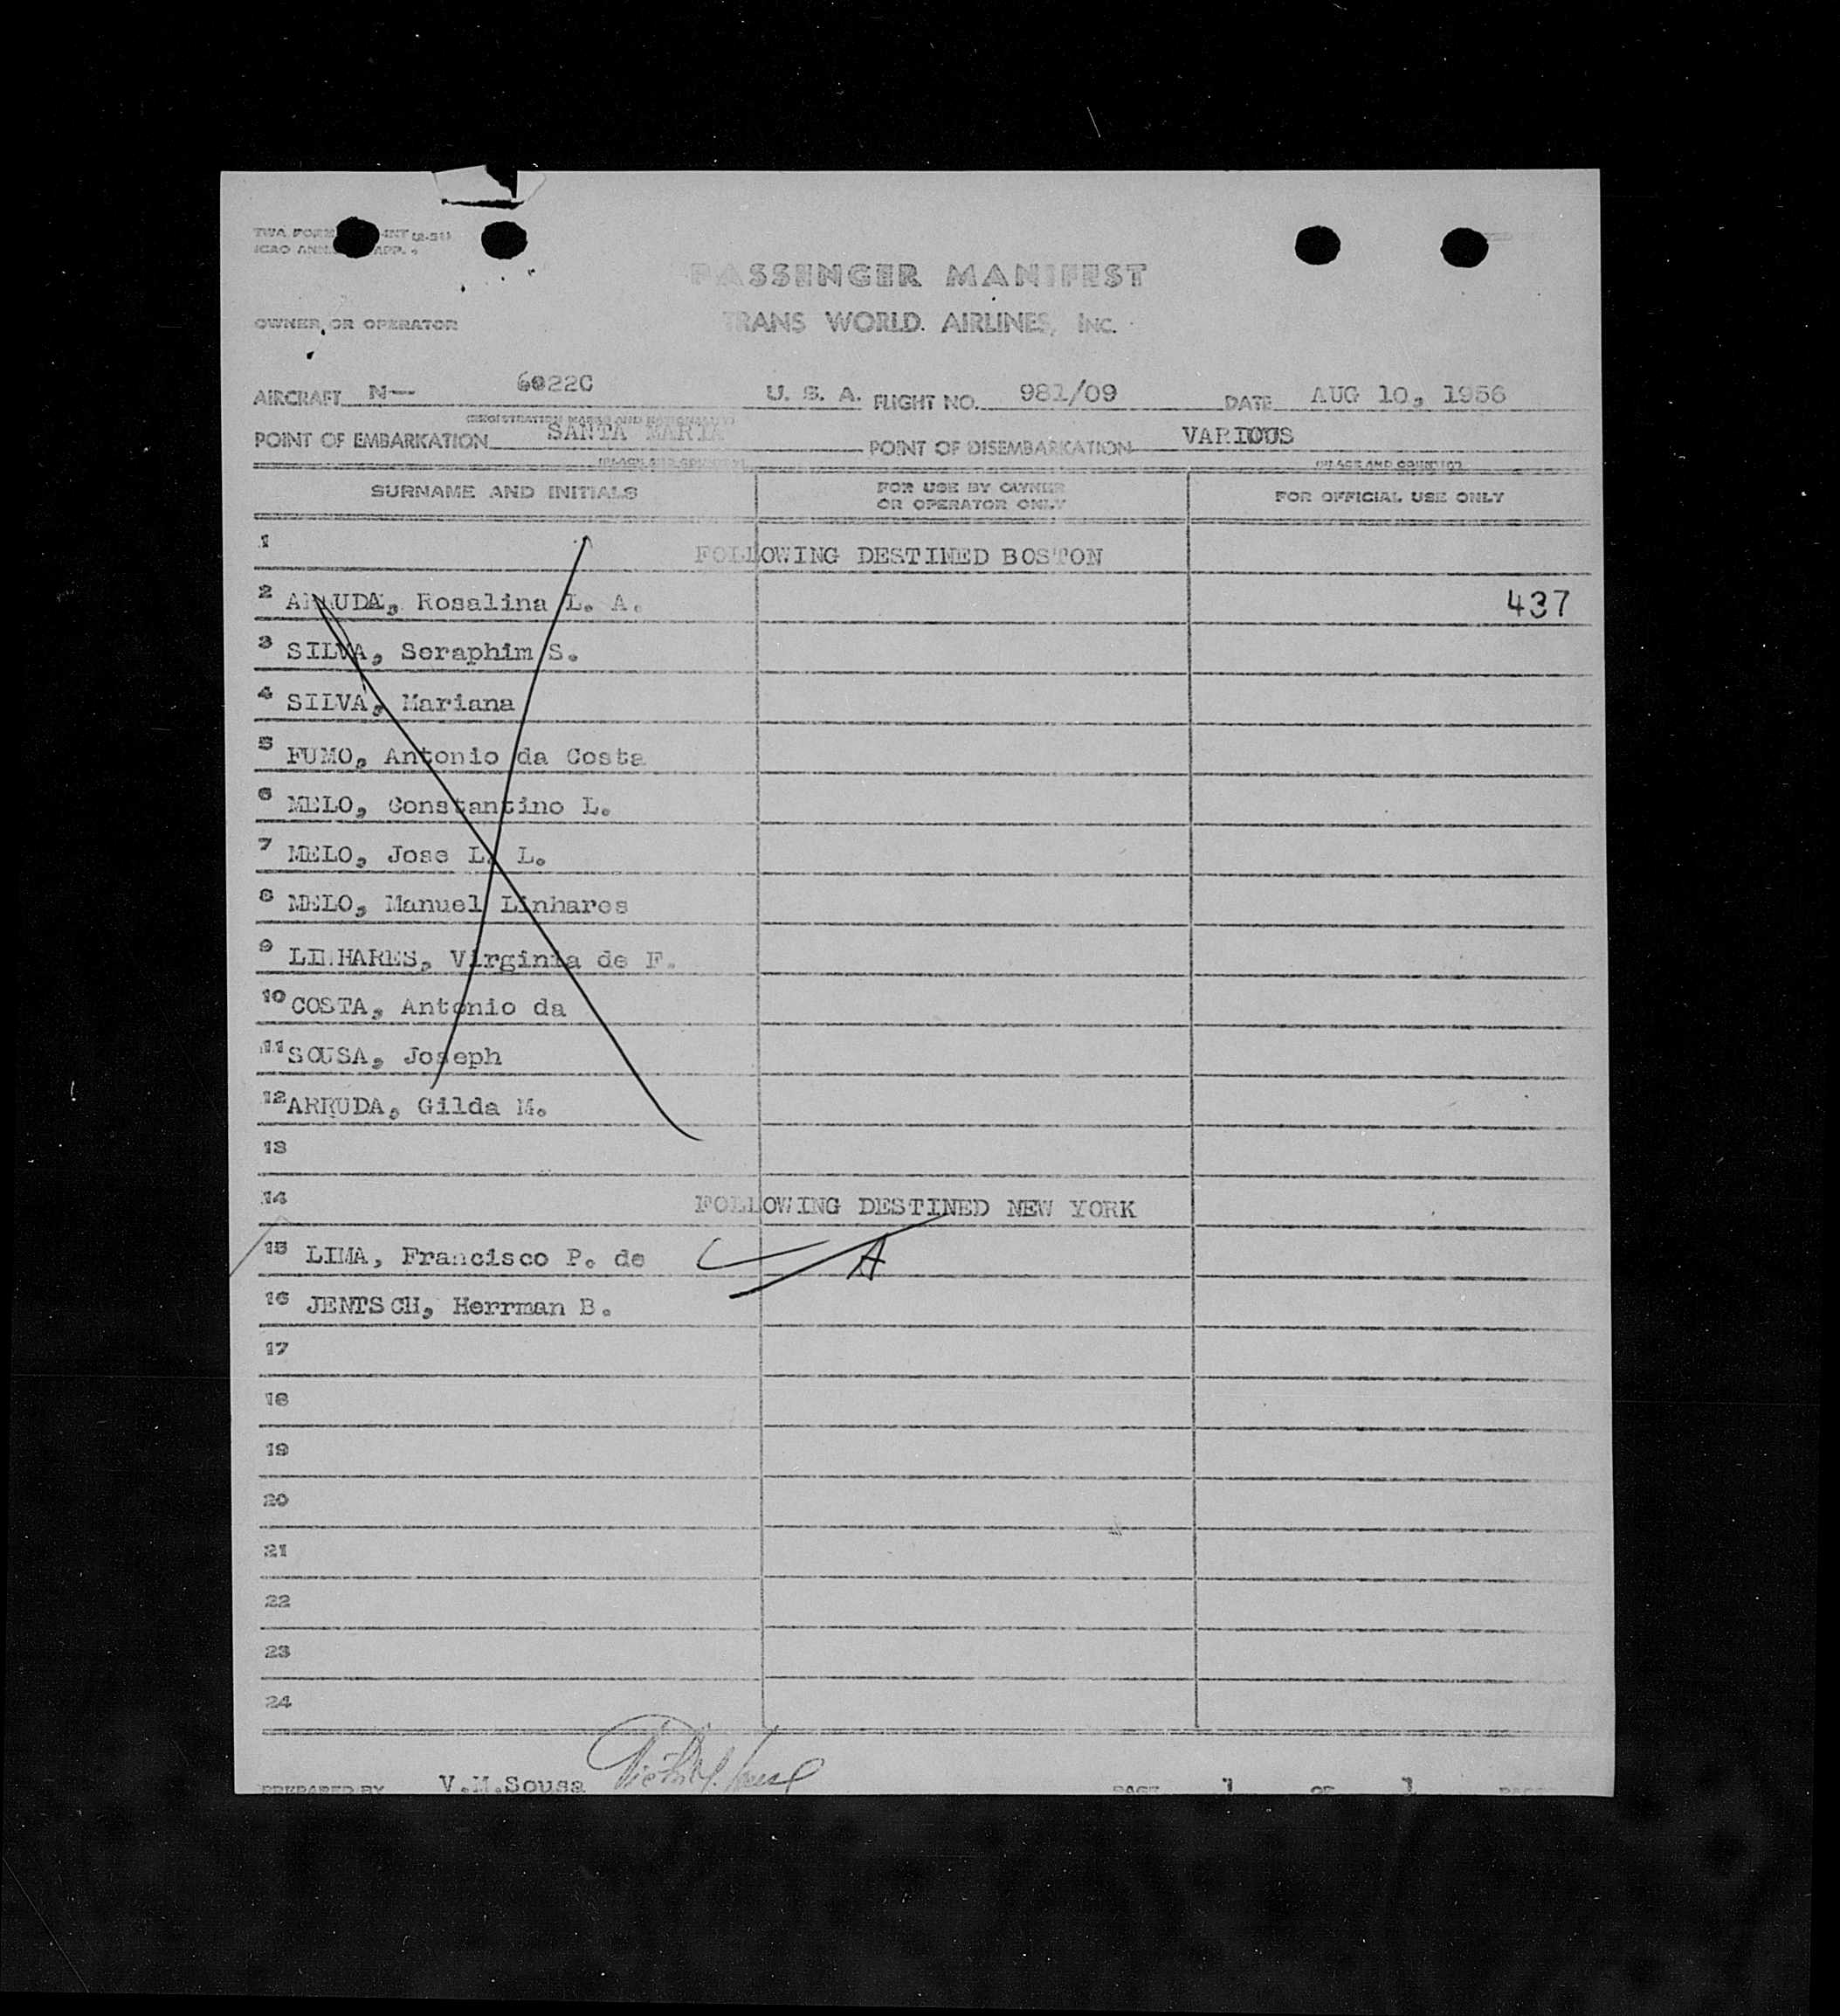 PASSENGER MANIFEST
OWNER OR OPERATOR TRANS WORLD AIRLINES, INC.
AIRCRAFT N— 6022C U. S. A. FLIGHT NO. 981/09 DATE AUG 10, 1956
(REGISTRATION MARKS AND NATIONALITY)
POINT OF EMBARKATION SANTA MARIA POINT OF DISEMBARKATION VARIOUS
(PLACE AND COUNTRY) (PLACE AND COUNTRY)
SURNAME AND INITIALS FOR USE BY OWNER OR OPERATOR ONLY FOR OFFICIAL USE ONLY
1 FOLLOWING DESTINED BOSTON
2 ARRUDA, Rosalina L. A. 437
3 SILVA, Seraphim S.
4 SILVA, Mariana
5 FUMO, Antonio da Costa
6 MELO, Constantino L.
7 MELO, Jose L. L.
8 MELO, Manuel Linhares
9 LINHARES, Virginia de F.
10 COSTA, Antonio da
11 SOUSA, Joseph
12 ARRUDA, Gilda M.
13
14 FOLLOWING DESTINED NEW YORK
15 LIMA, Francisco P. de A
16 JENTSCH, Herrman B.
17
18
19
20
21
22
23
24
PREPARED BY V.M.Sousa PAGE 1 OF 1